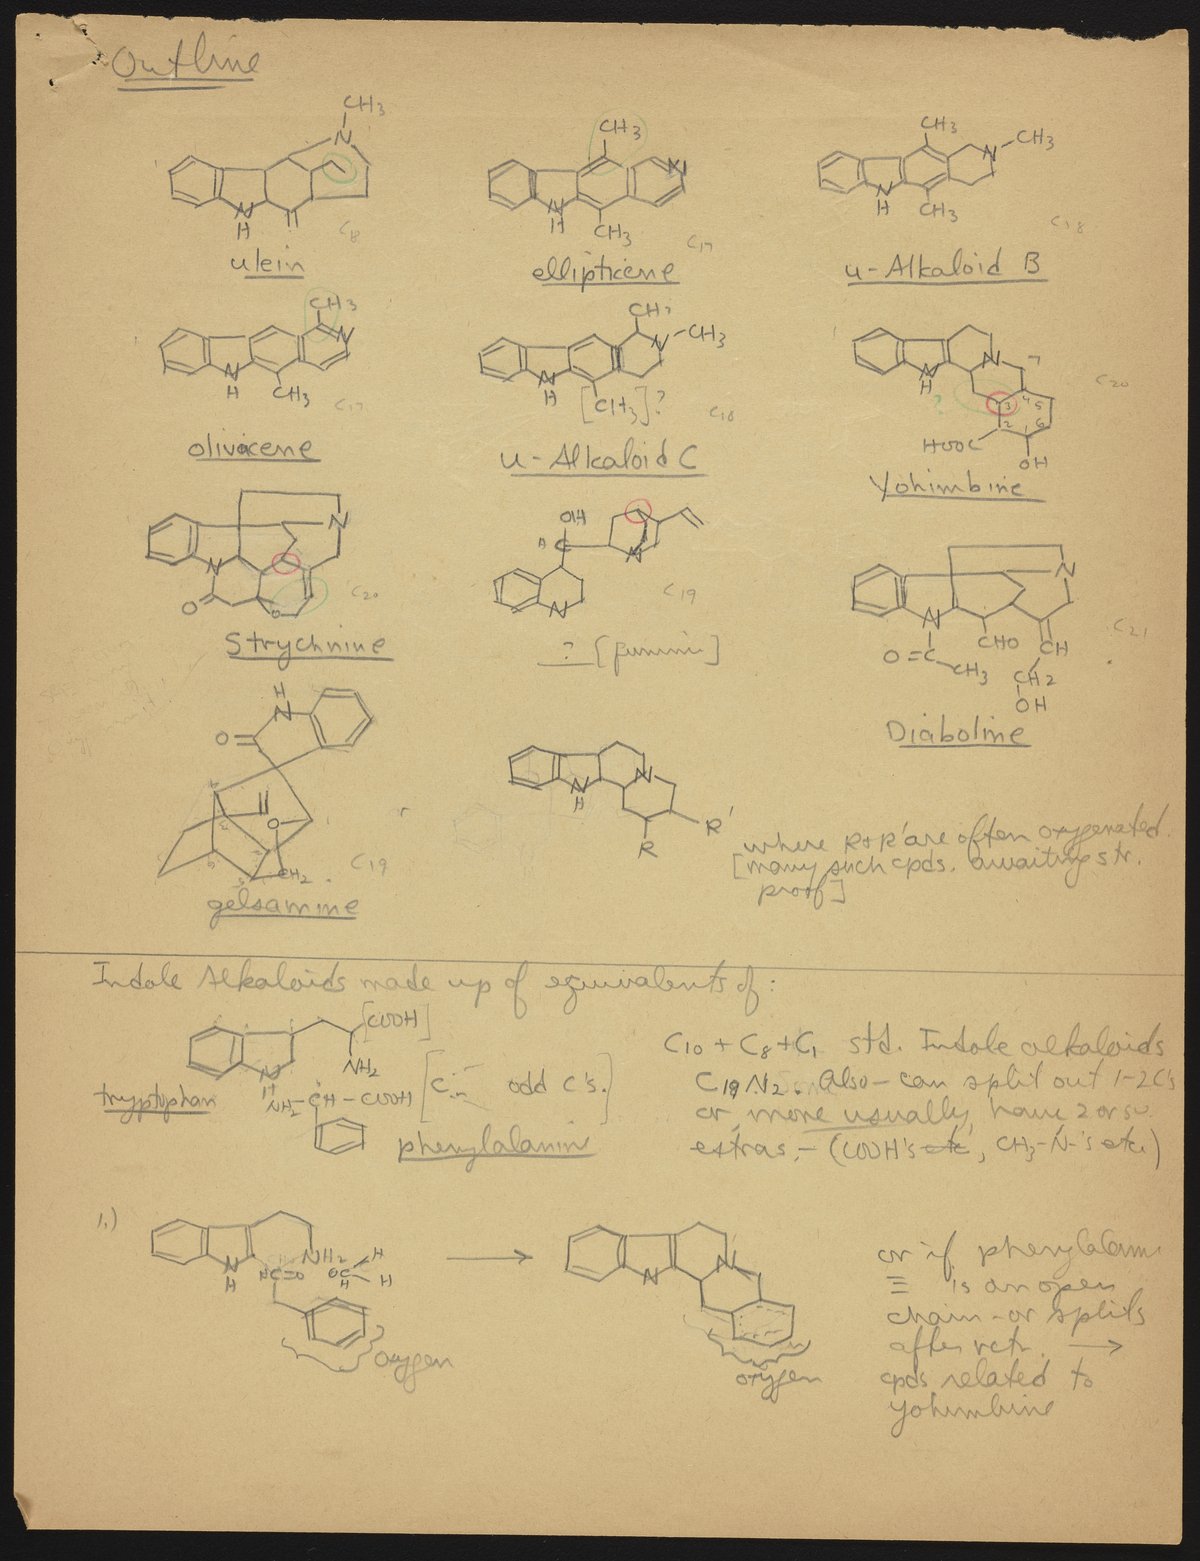 Outline
CH3
N
N
H
C18
ulein
CH3
N
N
H
CH3
C17
ellipticene
CH3
N-CH3
N
H
CH3
C18
u-Alkaloid B
CH3
N
N
H
CH3
C17
olivacene
CH3
N-CH3
N
H
[CH3]?
C18
u-Alkaloid C
N
N
H
?
3 4 5
2 1 6
HOOC
OH
C20
Yohimbine
N
N
O
O
C20
Strychnine
OH
C
N
N
C19
?
N
N
O=C
CH3
CHO
CH
CH2
OH
C21
Diaboline
H
N
O
O
CH2
C19
gelsamine
N
N
H
R'
R
where R+R' are often oxygenated.
[many such cpds. awaiting str.
proof]
Indole Alkaloids made up of equivalents of:
[COOH]
NH2
N
H
tryptophan
NH2-CH-COOH
phenylalanin
odd C's.]
C10 + C8 + C1 std. Indole alkaloids
C19N2. Also-can split out 1-2C's
or, more usually, have 2 or so
extras,- (COOH's etc, CH3-N-'s etc.)
1.)
NH2
N
H
HC=O
OC
H
H
H
oxygen
N
N
oxygen
or if phenylalanin
≡ is an open
chain-or splits
after rctn. →
cpds related to
yohimbine